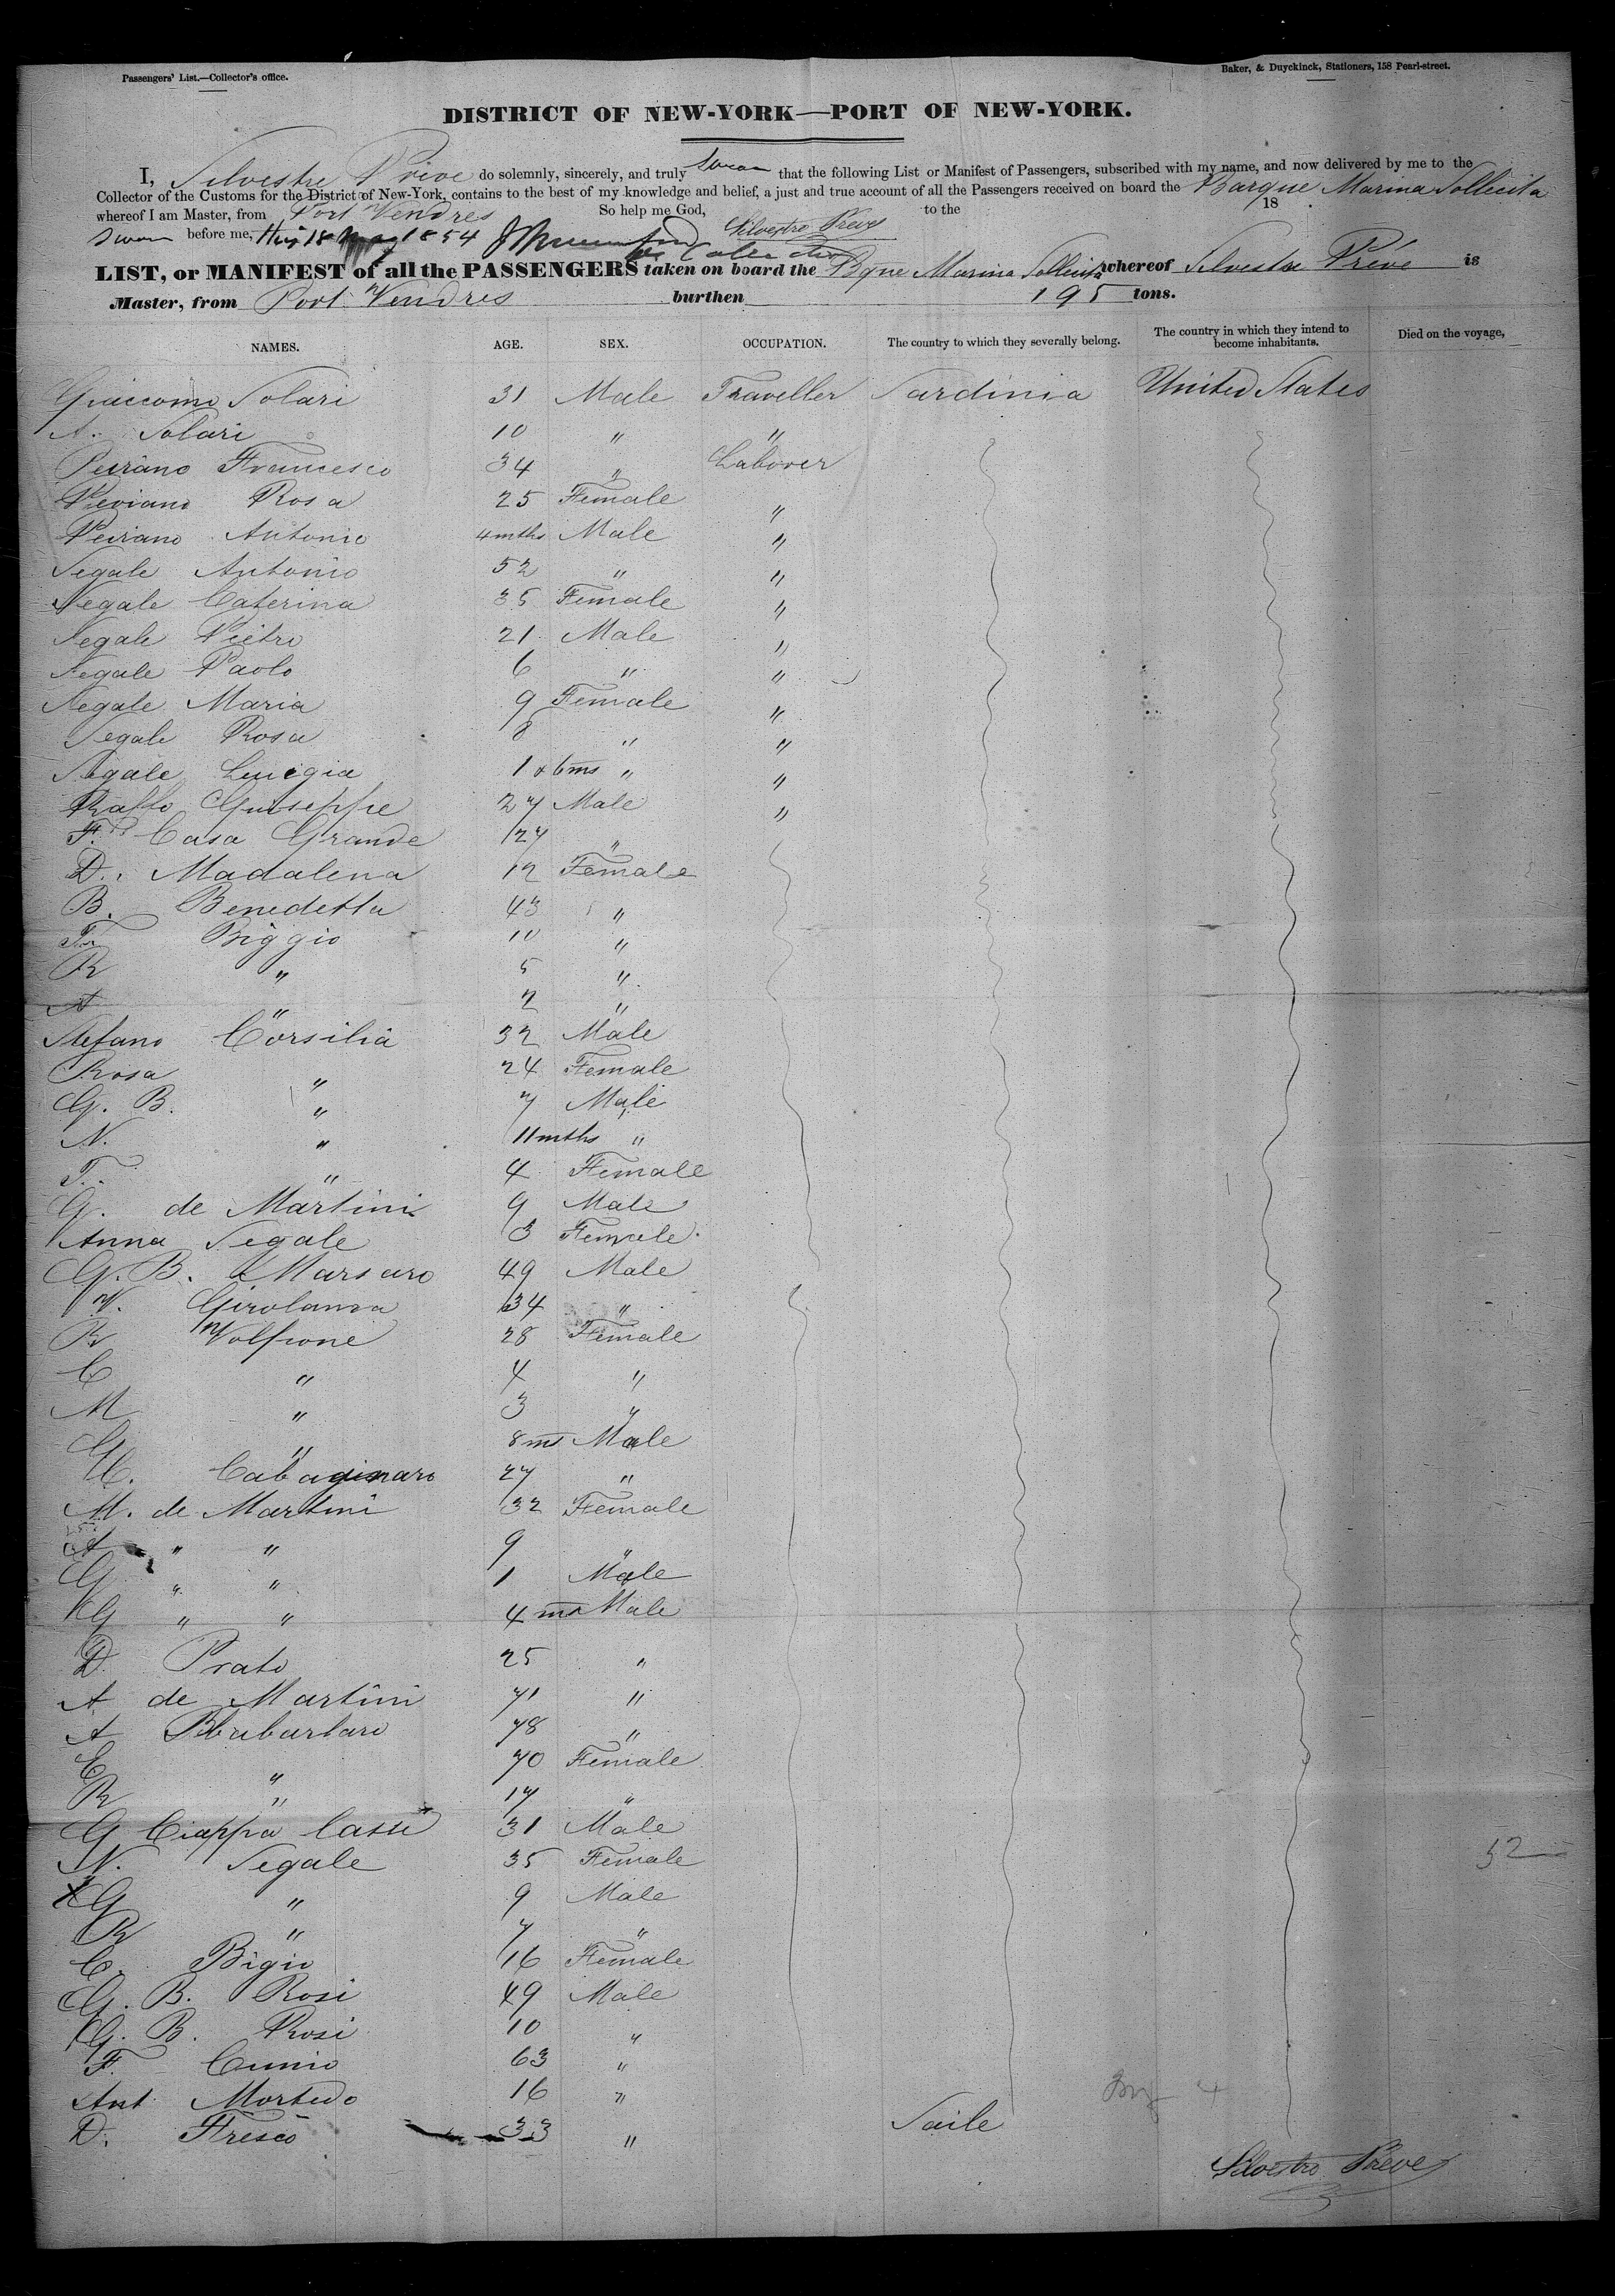 Passengers' List.—Collector's office.
Baker, & Duyckinck, Stationers, 158 Pearl-street.
DISTRICT OF NEW-YORK—PORT OF NEW-YORK.
I, Silvestre Préve do solemnly, sincerely, and truly Swear that the following List or Manifest of Passengers, subscribed with my name, and now delivered by me to the
Collector of the Customs for the District of New-York, contains to the best of my knowledge and belief, a just and true account of all the Passengers received on board the Barque Marina Sollicita
whereof I am Master, from Port Vendres So help me God, to the 18
Sworn before me, this 18 May 1854 Silvestro Preve
LIST, or MANIFEST of all the PASSENGERS taken on board the Bque Marina Sollicita whereof Silvestre Préve is
Master, from Port Vendres burthen 195 tons.
NAMES. AGE. SEX. OCCUPATION. The country to which they severally belong. The country in which they intend to become inhabitants. Died on the voyage,
Giaccomo Solari 31 Male Traveller Sardinia United States
A. Solari 10 " "
Peirano Francesco 34 " Laborer
Peviano Rosa 25 Female "
Peirano Antonio 4 mths Male "
Segale Antonio 52 " "
Segale Caterina 35 Female "
Segale Pietro 21 Male "
Segale Paolo 6 " "
Segale Maria 9 Female "
Segale Rosa 8 " "
Segale Luigia 1 & 6 ms " "
Raffo Guiseppe 27 Male "
F. Casa Grande 27 "
D. Madalena 12 Female
B. Benedetta 43 "
F. Biggio 10 "
R " 5 "
A " 2 "
Stefano Corsilia 32 Male
Rosa " 24 Female
G. B. " 7 Male
N. " 11 mths "
T. " 4 Female
G. de Martini 9 Male
Anna Segale 3 Female
G. B. Marsaro 49 Male
V. Girolama 34 "
R Volpone 28 Female
C " 4 "
M " 3 "
G " 8 ms Male
C. 27 "
M. de Martini 32 Female
A " " 9 "
G " " 1 Male
G " " 4 ms Male
D. Prato 25 "
A. de Martini 71 "
A 78 "
E " 70 Female
R " 17 "
G Ciappa Casse 31 Male
N. Segale 35 Female 52
X G " 9 Male
R " 7 "
C. Bigio 16 Female
G. B. Rosi 49 Male
G. B. Rosi 10 "
F. Cunio 63 "
Ant Mortedo 16 "
D. Fresco 33 " Saile
Silvestro Preve